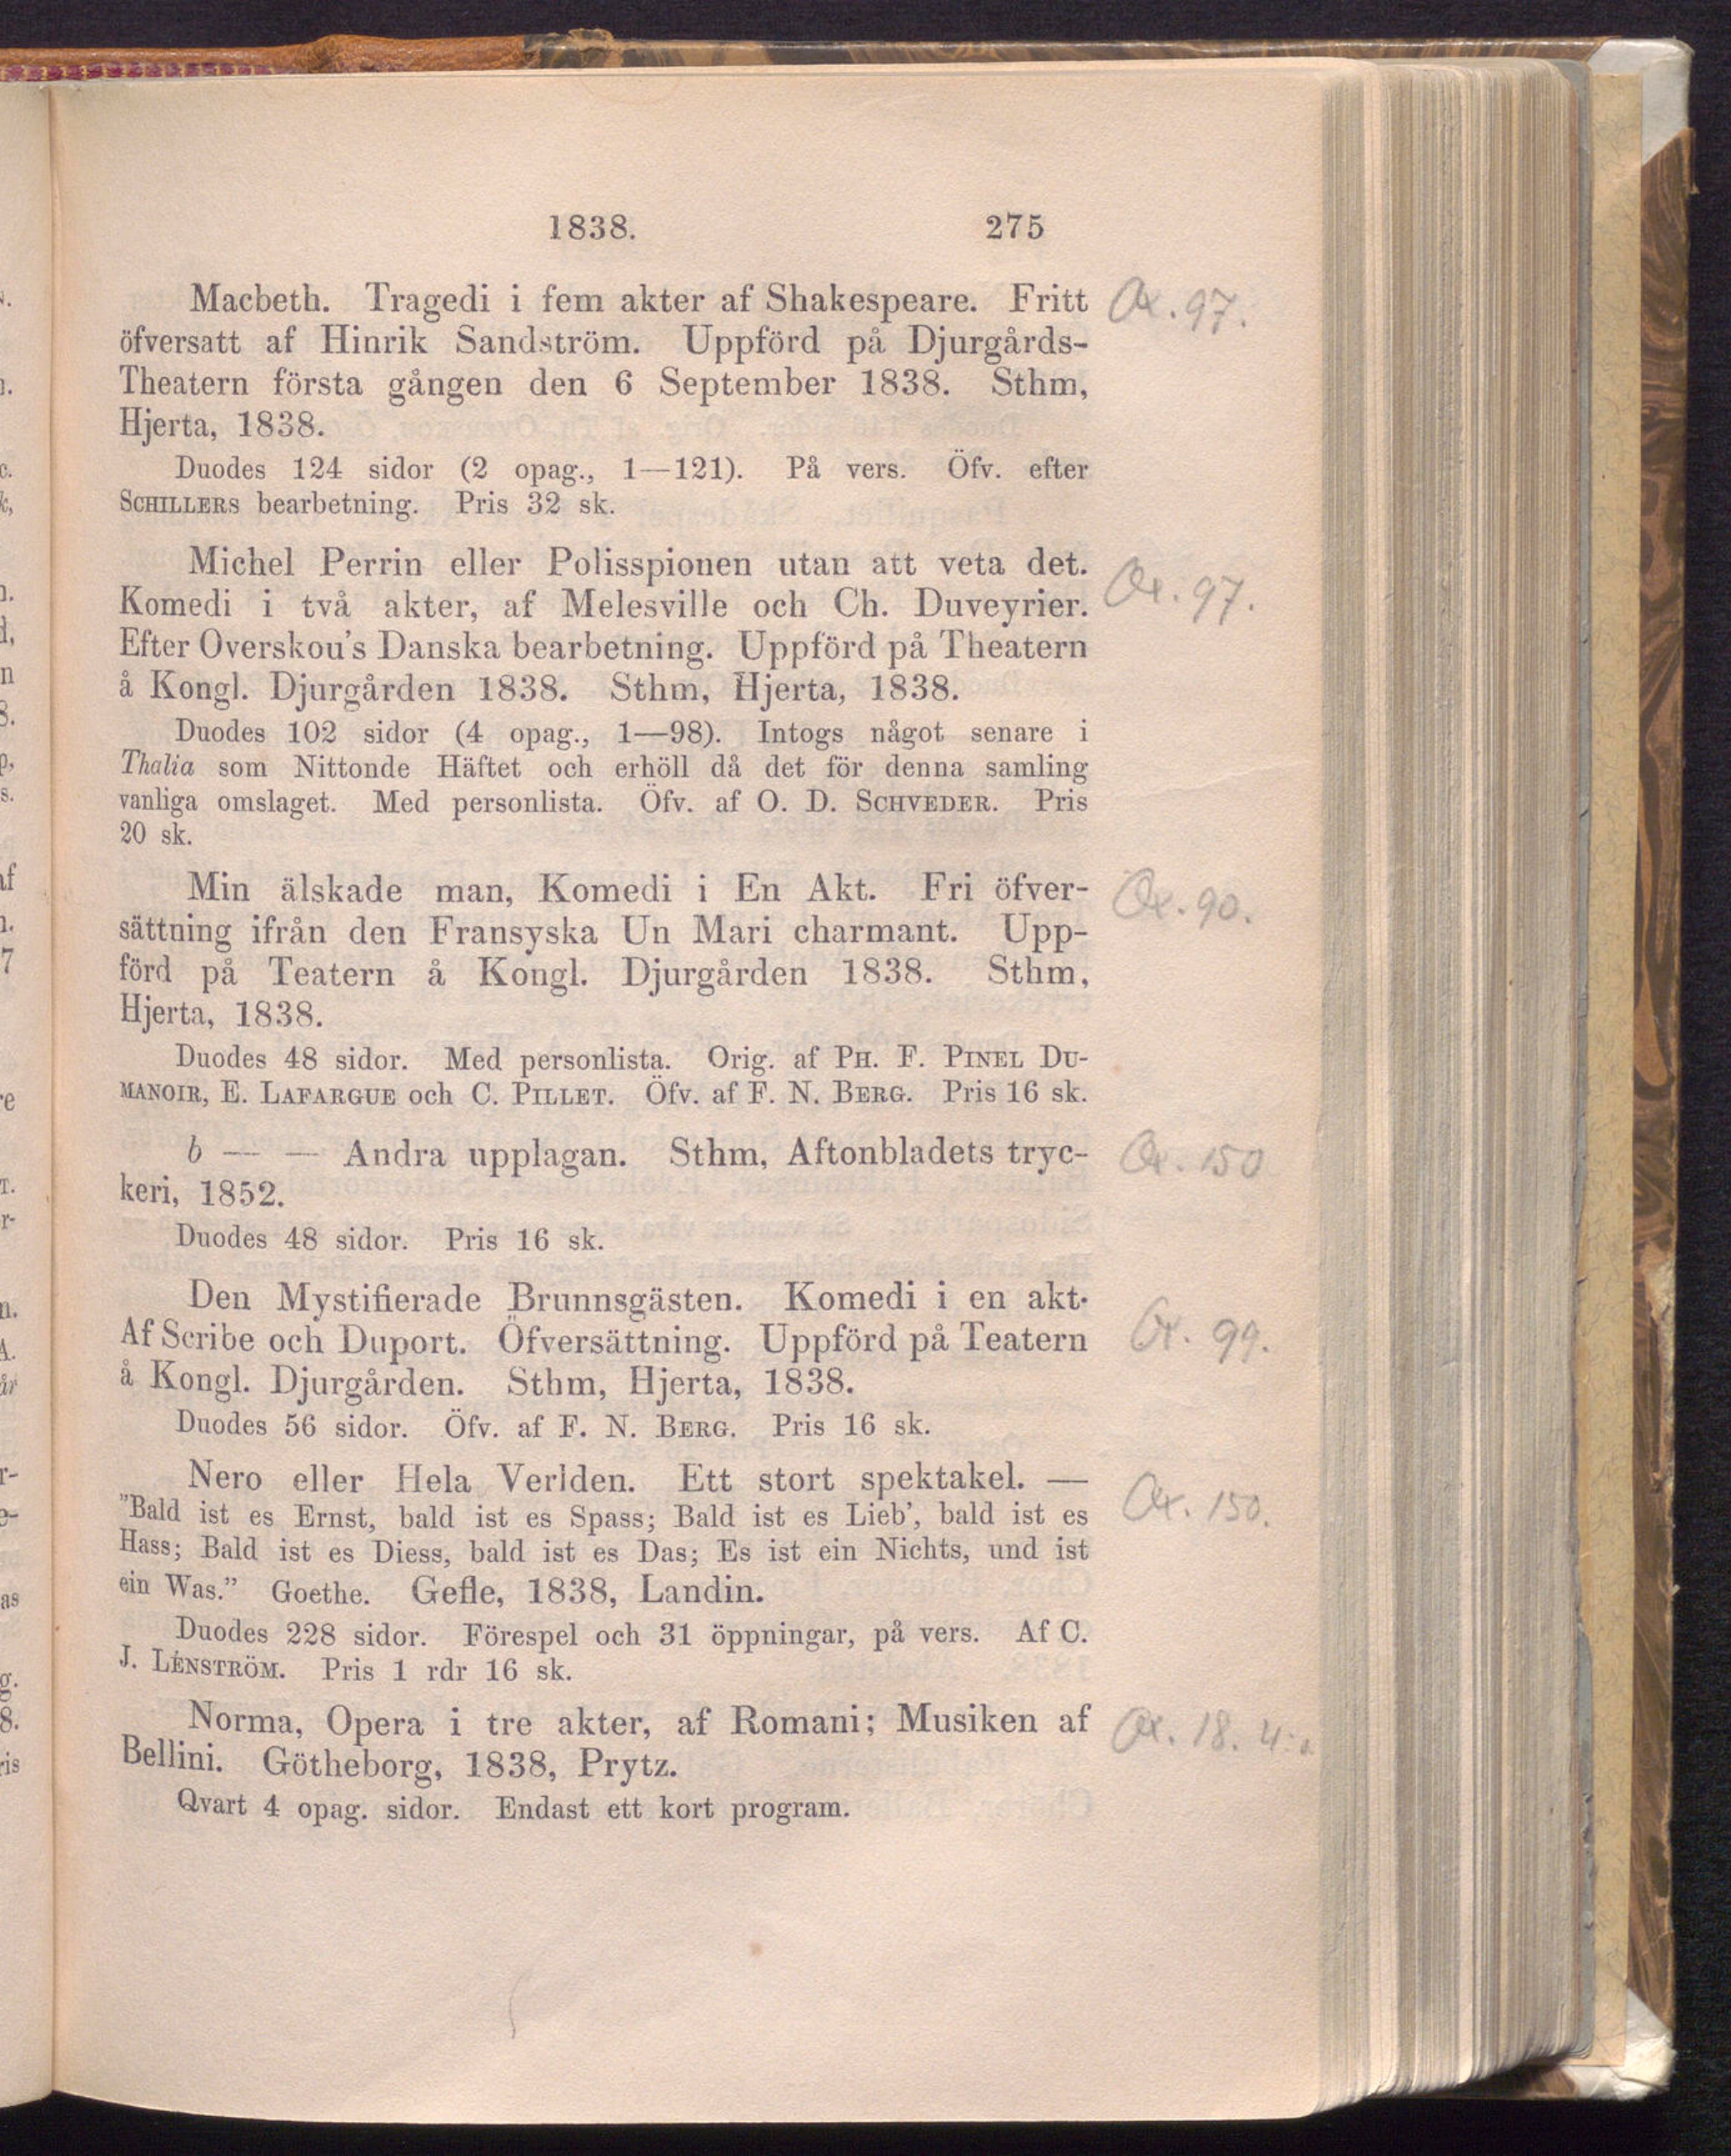 1838. 275
Macbeth. Tragedi i fem akter af Shakespeare. Fritt
öfversatt af Hinrik Sandström. Uppförd på Djurgårds-
Theatern första gången den 6 September 1838. Sthm,
Hjerta, 1838.
Duodes 124 sidor (2 opag., 1—121). På vers. Öfv. efter
SCHILLERS bearbetning. Pris 32 sk.
Michel Perrin eller Polisspionen utan att veta det.
Komedi i två akter, af Melesville och Ch. Duveyrier.
Efter Overskou's Danska bearbetning. Uppförd på Theatern
å Kongl. Djurgården 1838. Sthm, Hjerta, 1838.
Duodes 102 sidor (4 opag., 1—98). Intogs något senare i
Thalia som Nittonde Häftet och erhöll då det för denna samling
vanliga omslaget. Med personlista. Öfv. af O. D. SCHVEDER. Pris
20 sk.
Min älskade man, Komedi i En Akt. Fri öfver-
sättning ifrån den Fransyska Un Mari charmant. Upp-
förd på Teatern å Kongl. Djurgården 1838. Sthm,
Hjerta, 1838.
Duodes 48 sidor. Med personlista. Orig. af PH. F. PINEL DU-
MANOIR, E. LAFARGUE och C. PILLET. Öfv. af F. N. BERG. Pris 16 sk.
b — — Andra upplagan. Sthm, Aftonbladets tryc-
keri, 1852.
Duodes 48 sidor. Pris 16 sk.
Den Mystifierade Brunnsgästen. Komedi i en akt.
Af Scribe och Duport. Öfversättning. Uppförd på Teatern
å Kongl. Djurgården. Sthm, Hjerta, 1838.
Duodes 56 sidor. Öfv. af F. N. BERG. Pris 16 sk.
Nero eller Hela Verlden. Ett stort spektakel. —
"Bald ist es Ernst, bald ist es Spass; Bald ist es Lieb', bald ist es
Hass; Bald ist es Diess, bald ist es Das; Es ist ein Nichts, und ist
ein Was." Goethe. Gefle, 1838, Landin.
Duodes 228 sidor. Förespel och 31 öppningar, på vers. Af C.
J. LÉNSTRÖM. Pris 1 rdr 16 sk.
Norma, Opera i tre akter, af Romani; Musiken af
Bellini. Götheborg, 1838, Prytz.
Qvart 4 opag. sidor. Endast ett kort program.
97.
97.
90.
150
99.
150.
18. 4:o